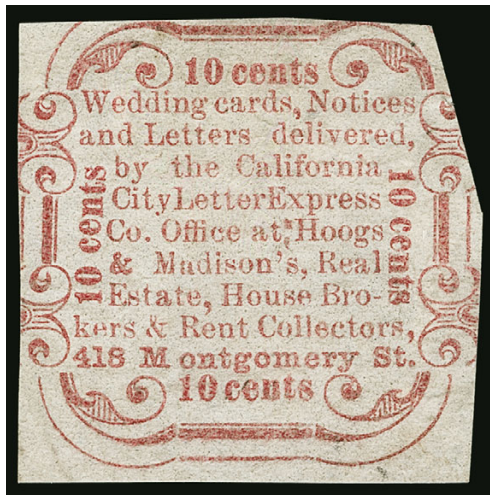 10 cents
Wedding cards, Notices
and Letters delivered,
by the California
City Letter Express
Co. Office at Hoogs
& Madison's, Real
Estate, House Bro-
kers & Rent Collectors,
418 M ontgomery St.
10 cents
10 cents
10 cents